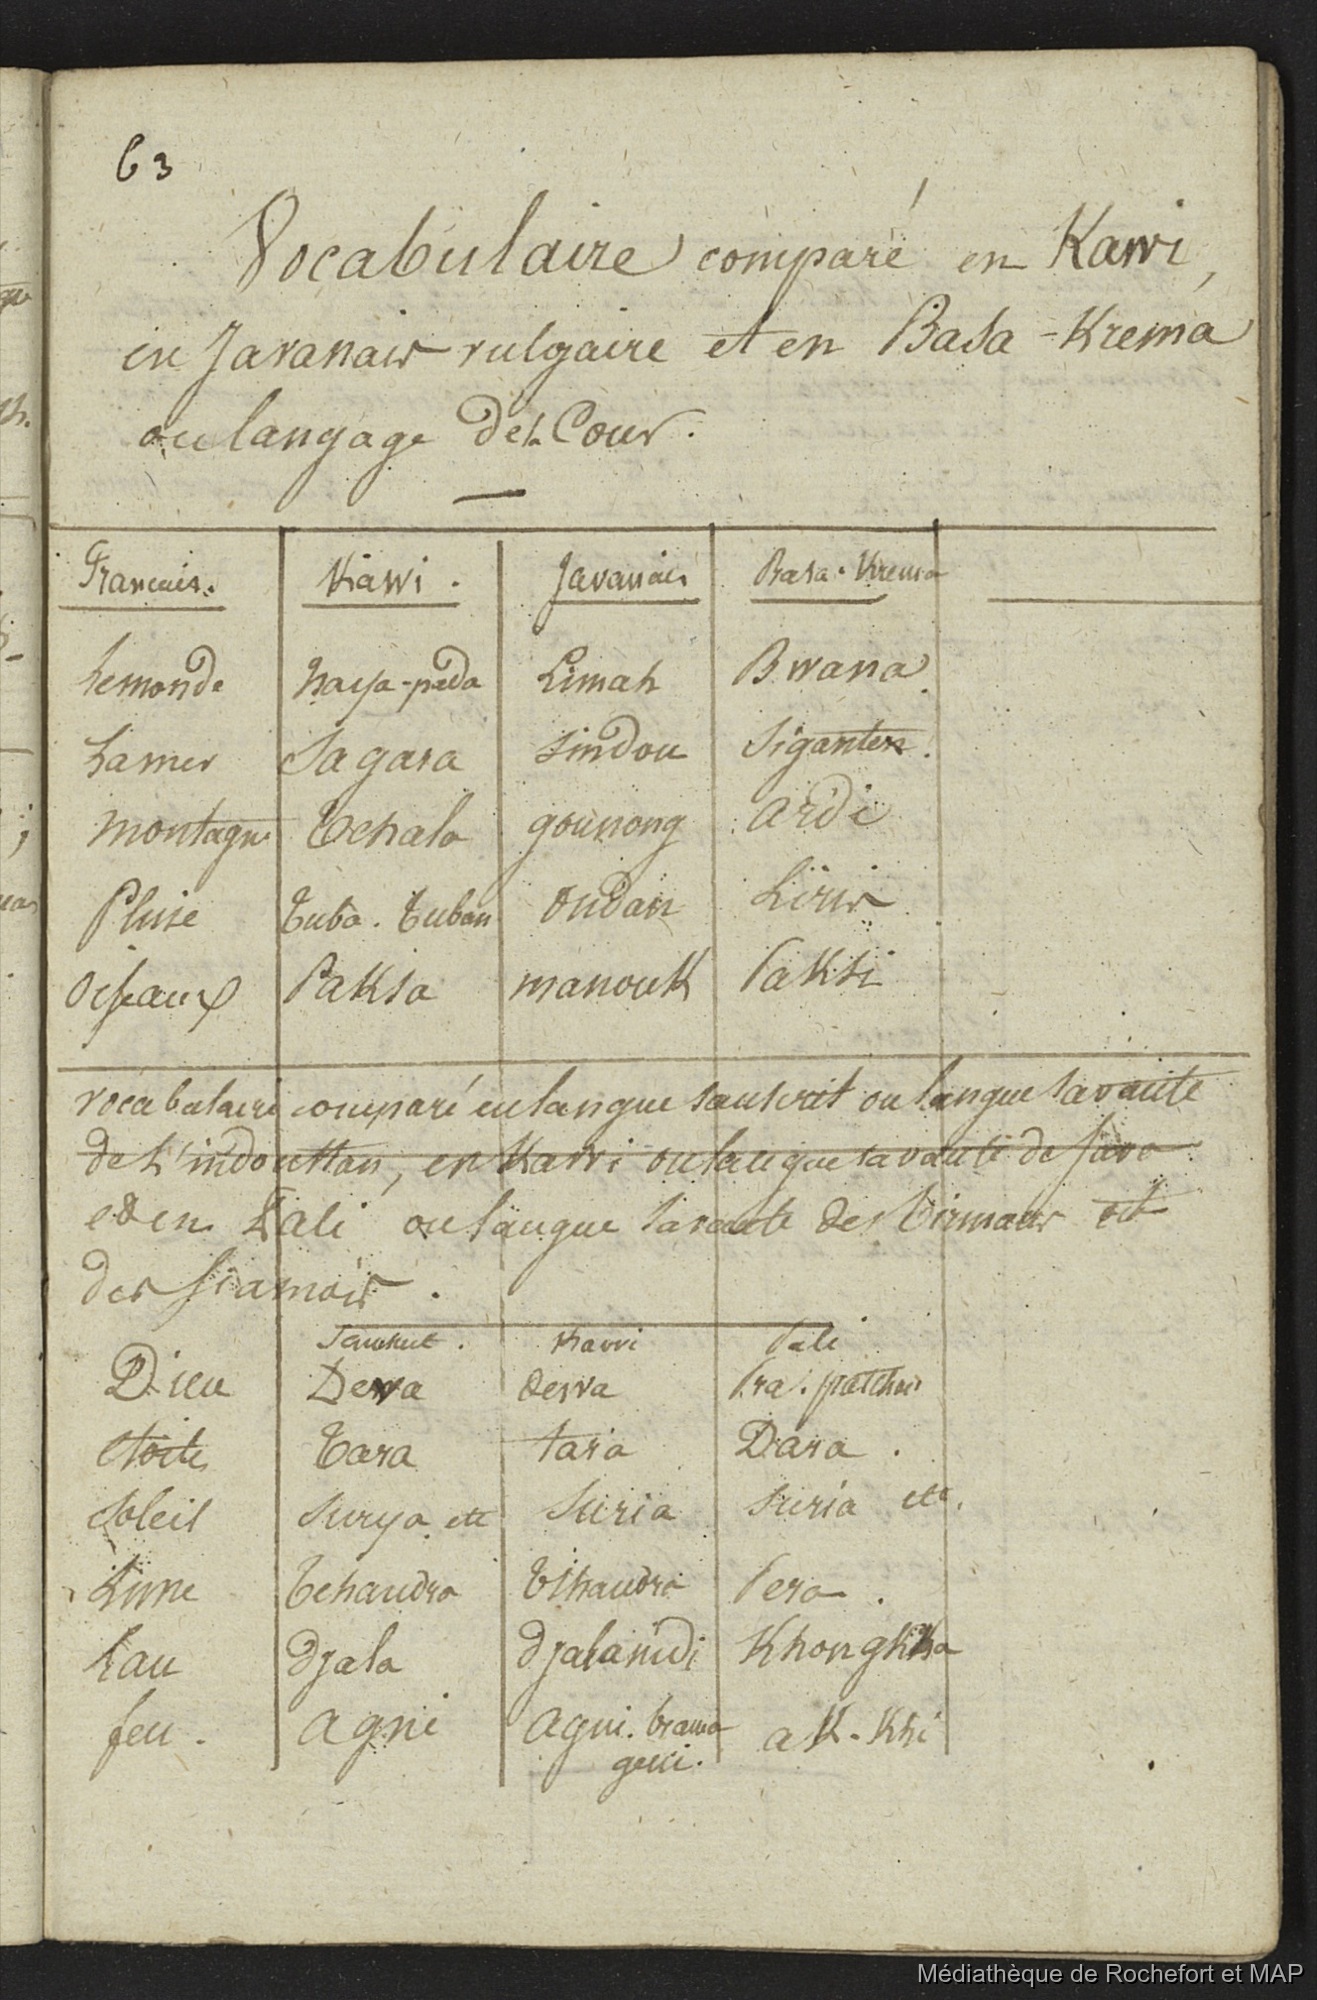 63
Vocabulaire comparé en Kawi,
en Javanais vulgaire et en Basa-Krema
ou langage de la Cour.
Francais. Kawi. Javanais Basa-Krema
le monde naya-pada Limah Bwana
la mer Sagara Lindou Siganten.
montagne Tchala gounong ardi
Pluie Tuba. Tuban Oudan Liris
Oiseaux Paksa manouk Paksi
vocabulaire comparé en langue sanscrit ou langue savante
de l'indoustan, en Kawi ou langue savante de Java
et en Pali ou langue savante des Birmans et
des siamois.
Sanskrit. Kawi Pali
Dieu Dewa dewa Pra.
etoile Tara tara Dara.
soleil Surya etc Suria Suria etc.
Lune Tchandra Tchandra Pera.
Eau djala djalanidi Khongkha
feu. agni agni. brama ak-khi
geni.
Médiathèque de Rochefort et MAP